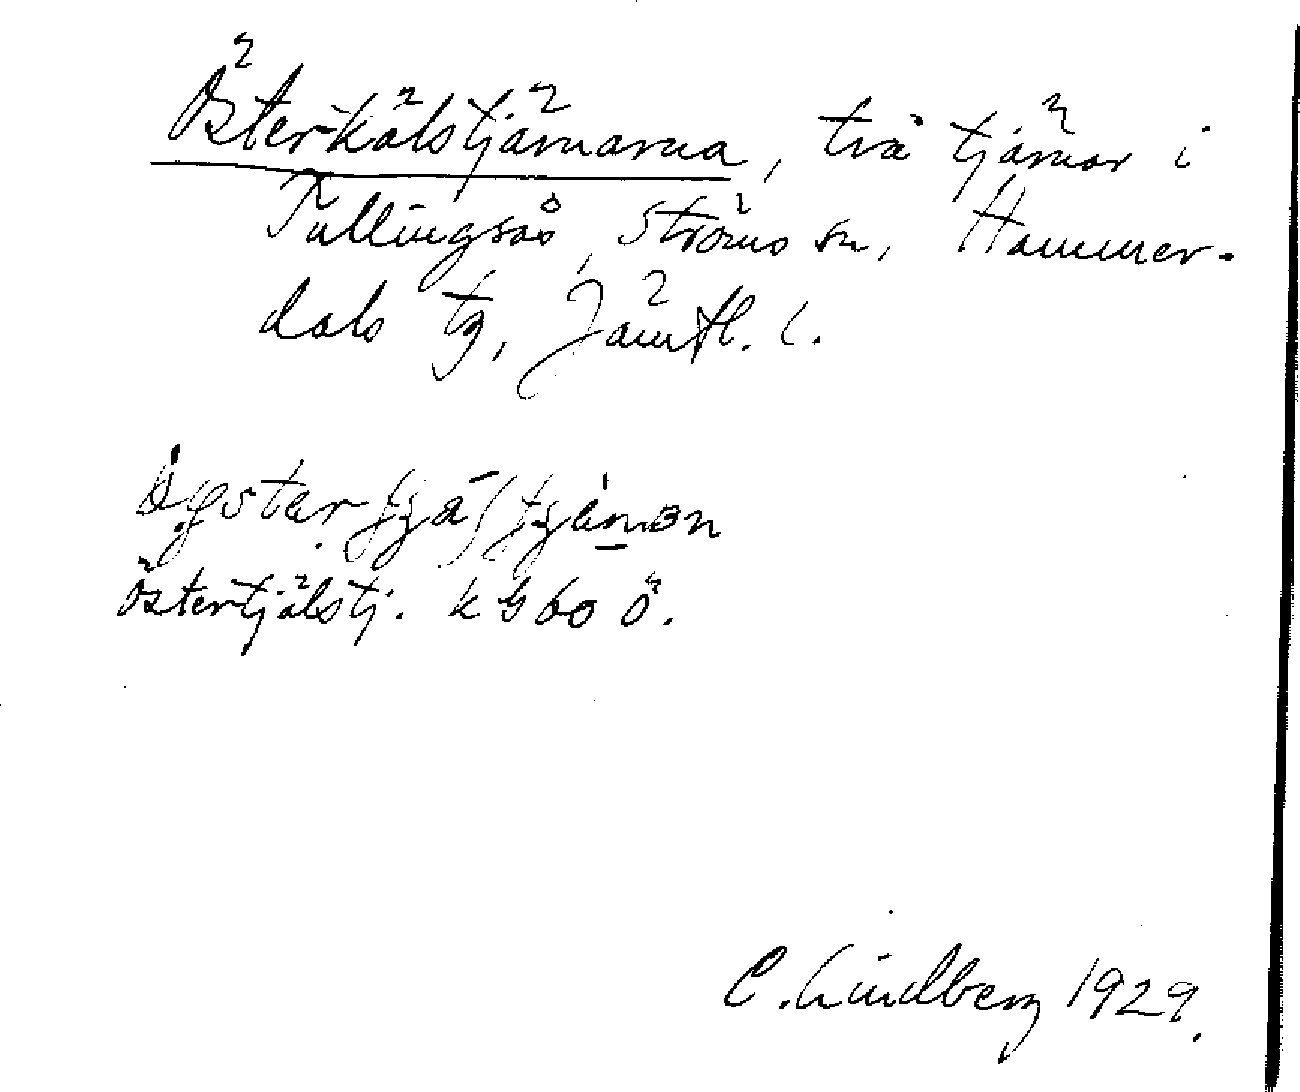 Österkälstjärnarna, två tjärnar i
Tullingsås, Ströms sn, Hammer-
dals tg, Jämtl. l.
Östertjälstj. k G 60 ö.
C. Lindberg 1929.